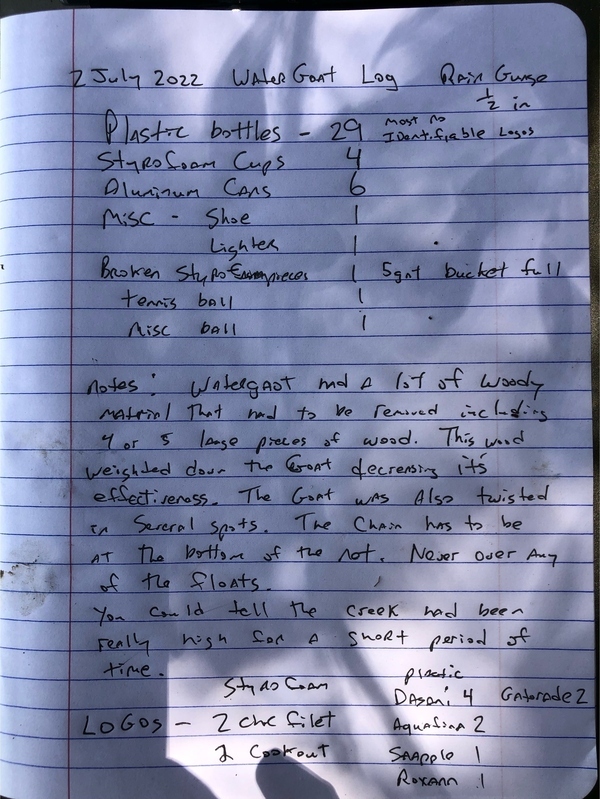 2 July 2022 WaterGoat Log Rain Guage
1/2 in
Plastic bottles - 29 most no Identifiable Logos
Styrofoam Cups 4
Aluminum Cans 6
Misc - Shoe 1
Lighter 1
Broken Styrofoam pieces 1 5gal bucket full
tennis ball 1
misc ball 1
notes: Watergoat had a lot of woody
material that had to be removed including
4 or 5 large pieces of wood. This wood
weighted down the Goat decreasing its
effectiveness. The Goat was also twisted
in several spots. The Chain has to be
at the bottom of the net. Never over any
of the floats.
You could tell the creek had been
really high for a short period of
time.
Styrofoam plastic
Dasani 4 Gatorade 2
LOGOS - 2 chc filet Aquafina 2
2 Cookout Snapple 1
Roxann 1